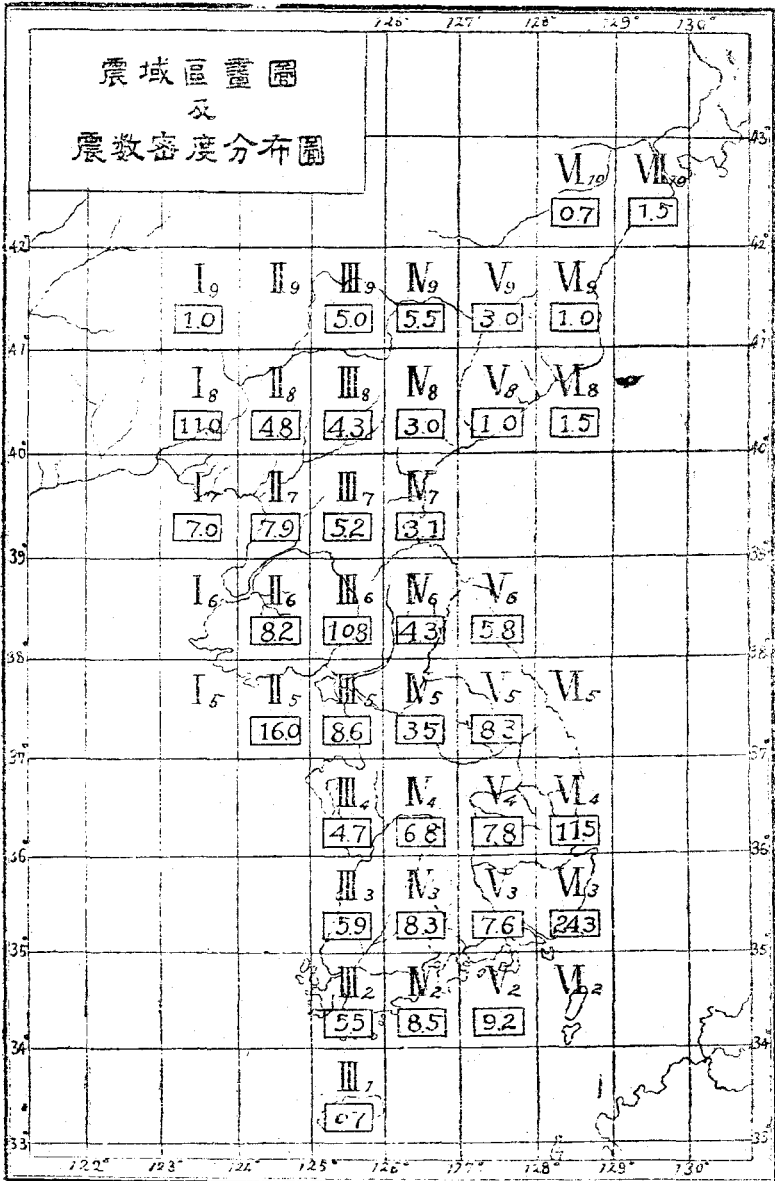 126° 127° 128° 129° 130°
震域區畫圖
及
震数密度分布圖
43° 43°
Ⅵ10 Ⅶ10
0.7 1.5
42° 42°
Ⅰ9 Ⅱ9 Ⅲ9 Ⅳ9 Ⅴ9 Ⅵ9
1.0 5.0 5.5 3.0 1.0
41° 41°
Ⅰ8 Ⅱ8 Ⅲ8 Ⅳ8 Ⅴ8 Ⅵ8
11.0 4.8 4.3 3.0 1.0 1.5
40° 40°
Ⅰ7 Ⅱ7 Ⅲ7 Ⅳ7
7.0 7.9 5.2 3.1
39° 39°
Ⅰ6 Ⅱ6 Ⅲ6 Ⅳ6 Ⅴ6
8.2 10.8 4.3 5.8
38° 38°
Ⅰ5 Ⅱ5 Ⅲ5 Ⅳ5 Ⅴ5 Ⅵ5
16.0 8.6 3.5 8.3
37° 37°
Ⅲ4 Ⅳ4 Ⅴ4 Ⅵ4
4.7 6.8 7.8 11.5
36° 36°
Ⅲ3 Ⅳ3 Ⅴ3 Ⅵ3
5.9 8.3 7.6 24.3
35° 35°
Ⅲ2 Ⅳ2 Ⅴ2 Ⅵ2
5.5 8.5 9.2
34° 34°
Ⅲ1
0.7
33° 33°
122° 123° 124° 125° 126° 127° 128° 129° 130°